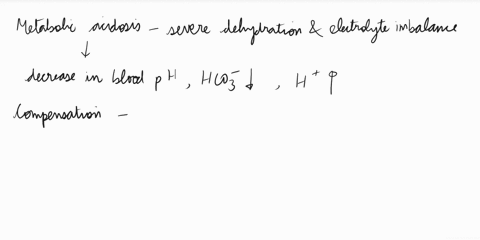 Metabolic acidosis – severe dehydration & electrolyte imbalance
↓
decrease in blood pH , HCO3⁻ ↓ , H⁺ ↑
Compensation –